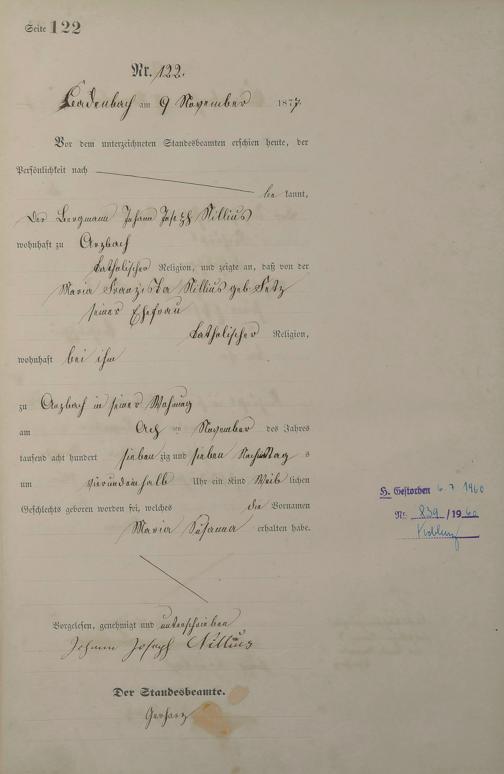 Seite 122
Nr. 122.
Cadenbach am 9 November 1877
Vor dem unterzeichneten Standesbeamten erschien heute, der
Persönlichkeit nach
be kannt,
der Bergmann Johann Joseph Nillius
wohnhaft zu Arzbach
katholischer Religion, und zeigte an, daß von der
Maria Franziska Nillius geb.
seiner Ehefrau
katholischer Religion,
wohnhaft bei ihm
zu Arzbach in seiner Wohnung
am Acht ten November des Jahres
tausend acht hundert sieben zig und sieben Nachmittag s
um vier und ein halb Uhr ein Kind weib lichen
Geschlechts geboren worden sei, welches die Vornamen
Maria Susanna erhalten habe.
Vorgelesen, genehmigt und unterschrieben
Johann Joseph Nillius
Der Standesbeamte.
Gerharz
H. Gestorben 6.7.1960
Nr. 839 / 1960
Koblenz